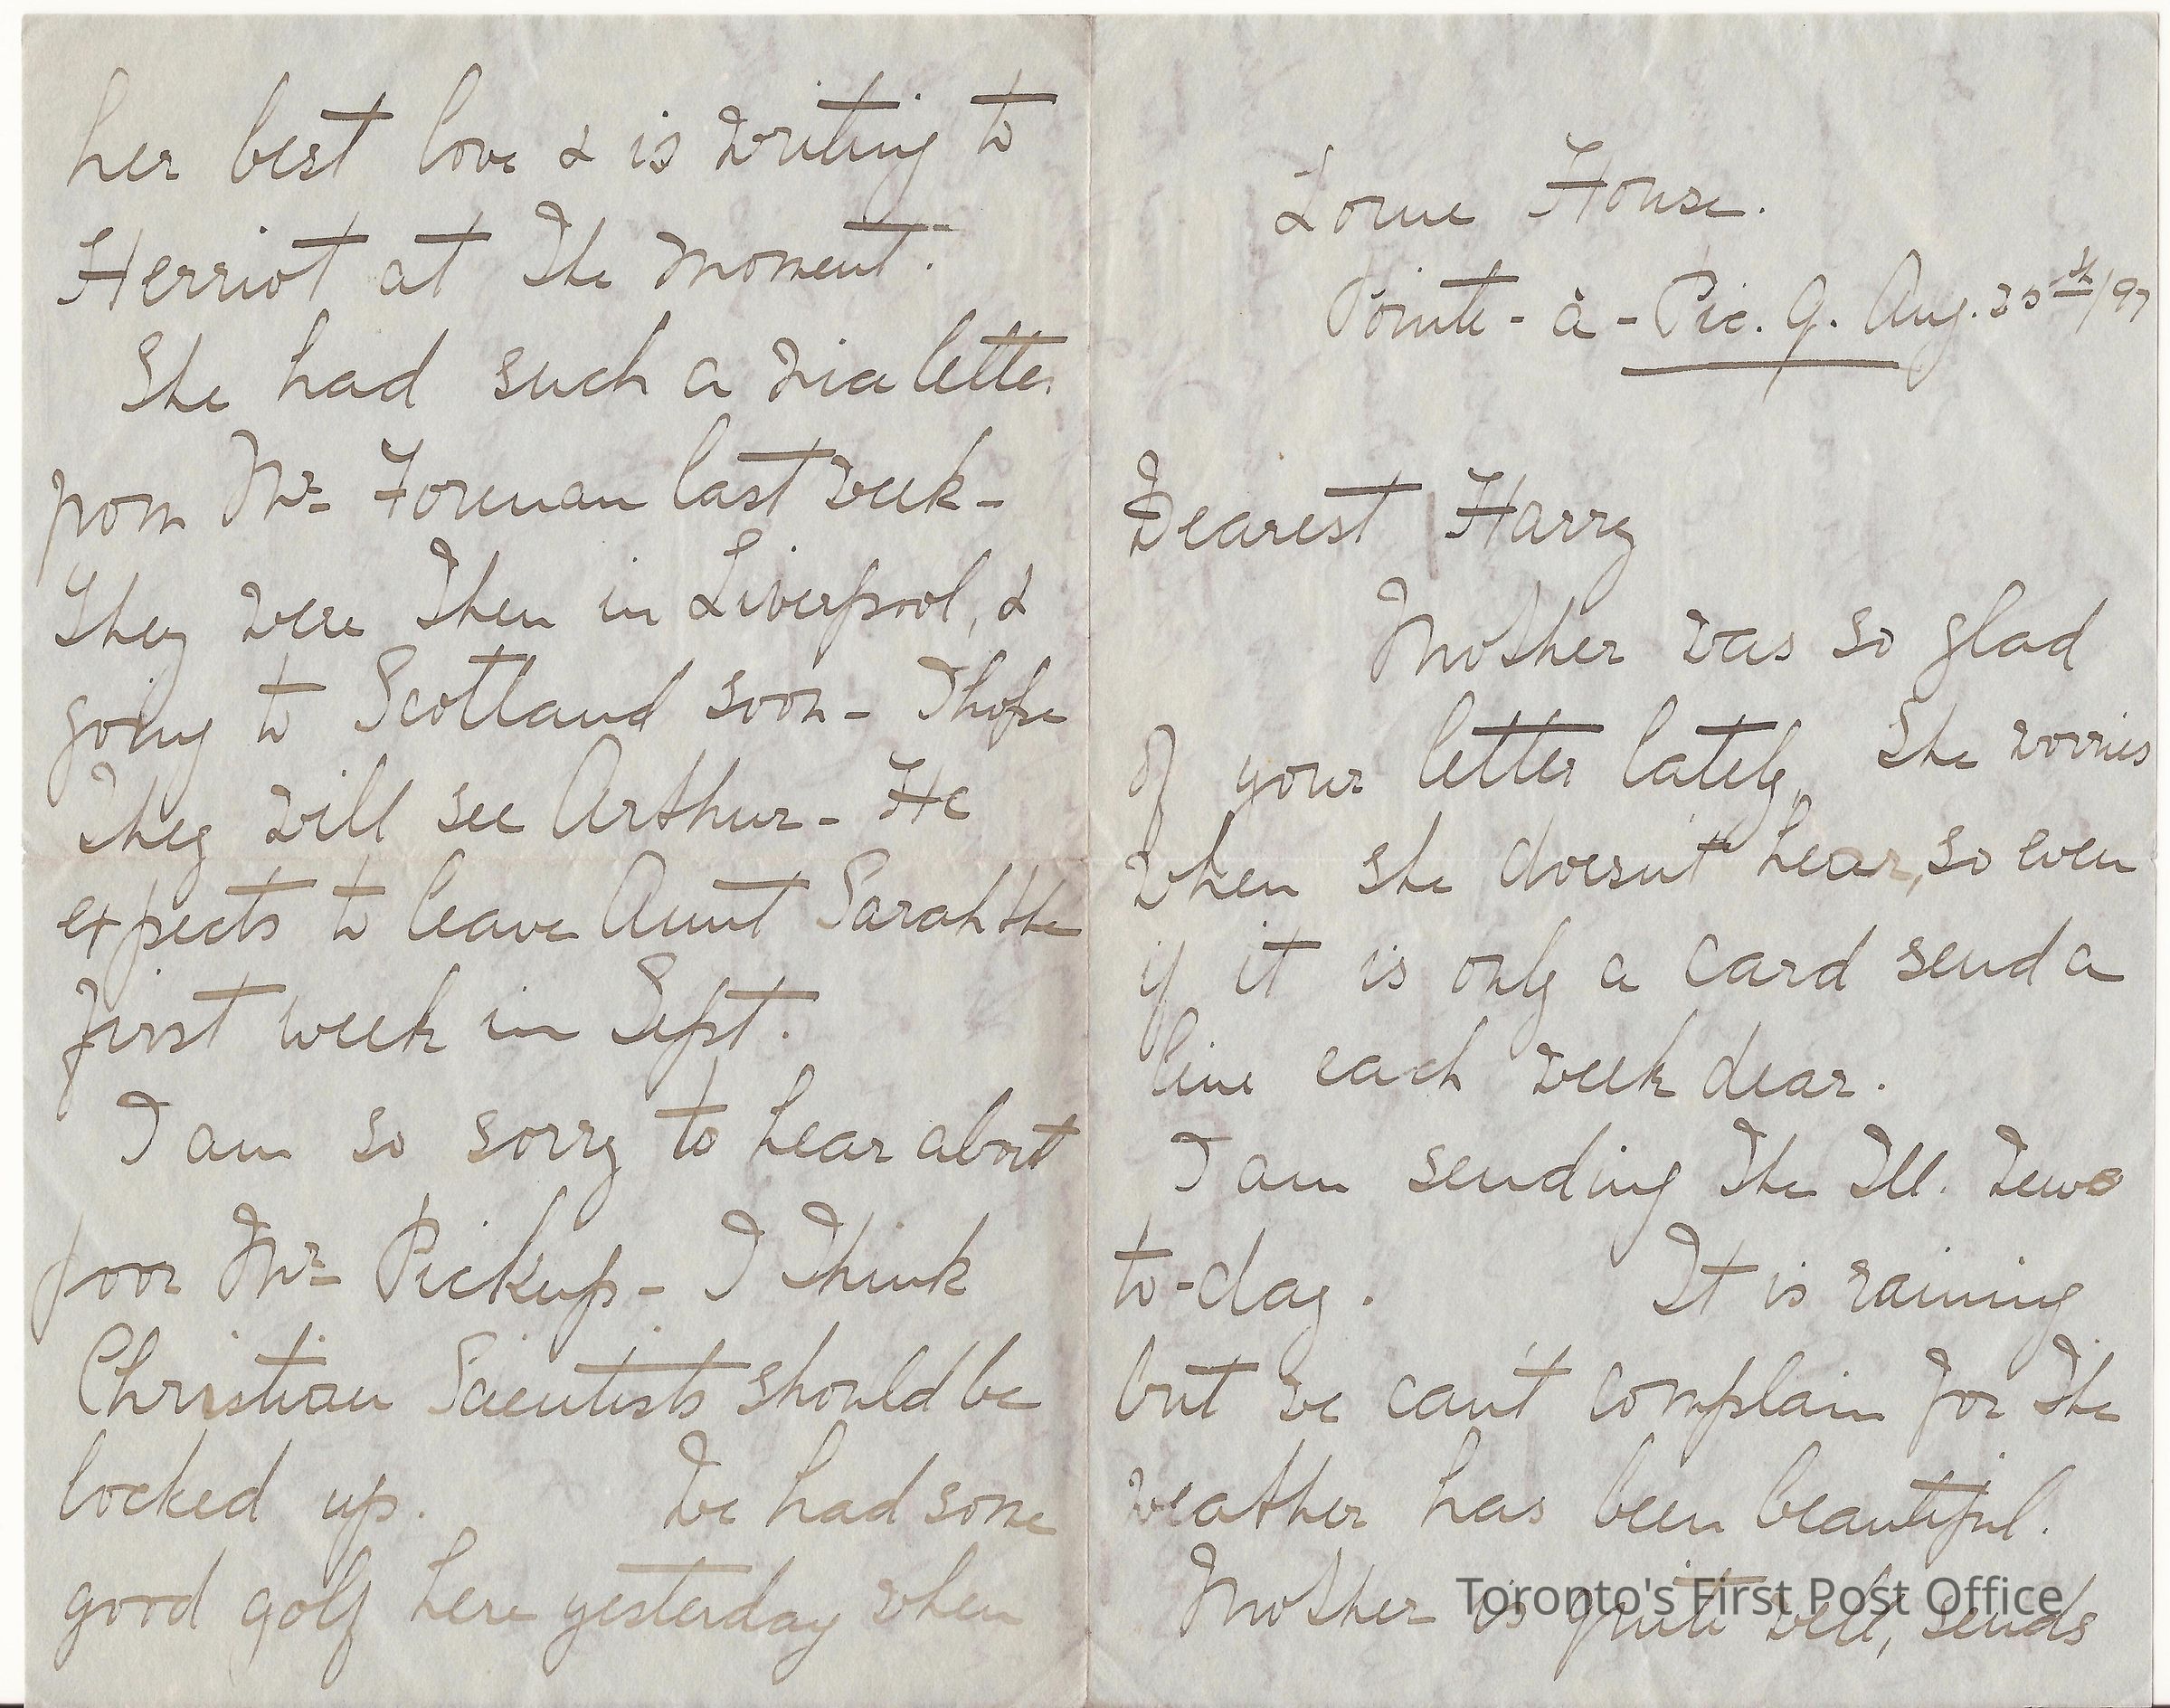 Lorne House.
Pointe-à-Pic. Q. Aug. 25th/97
Dearest Harry
Mother was so glad
of your letter lately, She worries
when she doesn't hear, so even
if it is only a card send a
line each week dear.
I am sending the Ill. News
to-day. It is raining
but we can't complain for the
weather has been beautiful.
Mother is quite well, sends
her best love & is writing to
Herriot at the moment.
She had such a nice letter
from Mr. Foreman last week-
They were then in Liverpool, &
going to Scotland soon- I hope
They will see Arthur- He
expects to leave Aunt Sarah the
first week in Sept.
I am so sorry to hear about
poor Mr. Pickup- I think
Christian Scientists should be
locked up. We had some
good golf here yesterday when
Toronto's First Post Office